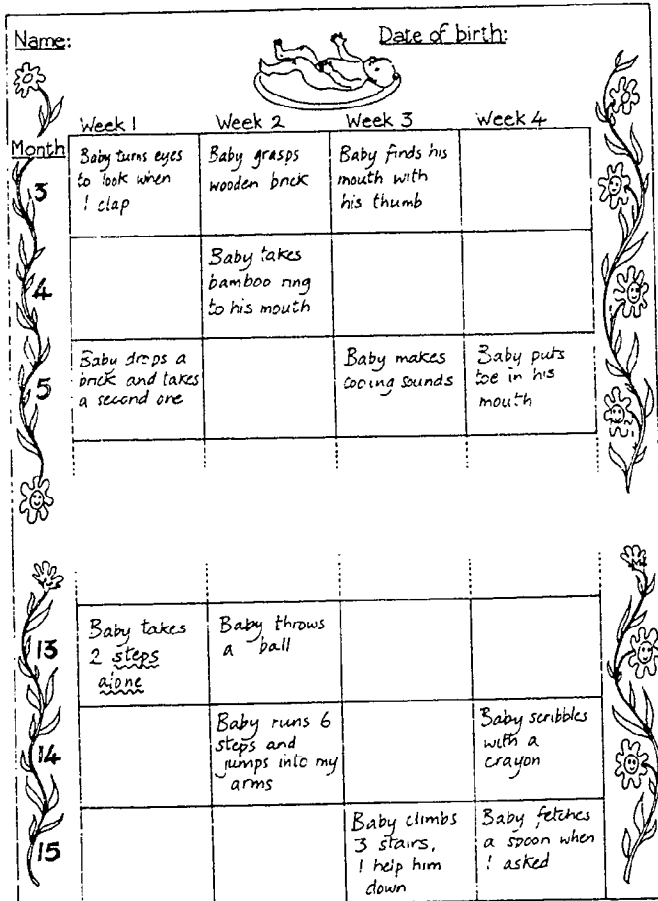 Name:
Date of birth:
Week 1 Week 2 Week 3 Week 4
Month
3
Baby turns eyes
to look when
I clap
Baby grasps
wooden brick
Baby finds his
mouth with
his thumb
4
Baby takes
bamboo ring
to his mouth
5
Baby drops a
brick and takes
a second one
Baby makes
cooing sounds
Baby puts
toe in his
mouth
13
Baby takes
2 steps
alone
Baby throws
a ball
14
Baby runs 6
steps and
jumps into my
arms
Baby scribbles
with a
crayon
15
Baby climbs
3 stairs,
I help him
down
Baby fetches
a spoon when
I asked